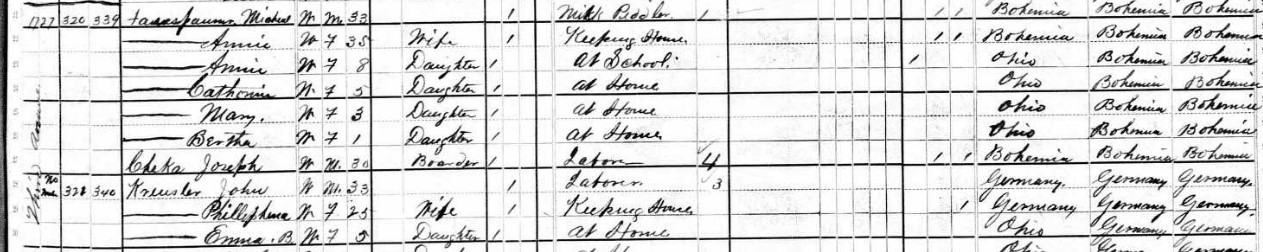 1727 320 339 Michael W M 33 1 Milk Peddler 1 1 1 Bohemia Bohemia Bohemia
Annie W F 35 Wife 1 Keeping House 1 1 Bohemia Bohemia Bohemia
Annie W F 8 Daughter 1 At School 1 Ohio Bohemia Bohemia
Catherine W F 5 Daughter 1 At Home Ohio Bohemia Bohemia
Mary. W F 3 Daughter 1 At Home Ohio Bohemia Bohemia
Bertha W F 1 Daughter 1 At Home Ohio Bohemia Bohemia
Cheka Joseph W M. 30 Boarder 1 Labor 4 1 1 Bohemia Bohemia Bohemia
No 321 340 Kreusler John W M. 33 1 Laborer 3 Germany. Germany Germany.
Phillephena W F 25 Wife 1 Keeping House 1 Germany Germany Germany.
Emma. B W F 5 Daughter 1 At Home Ohio Germany Germany